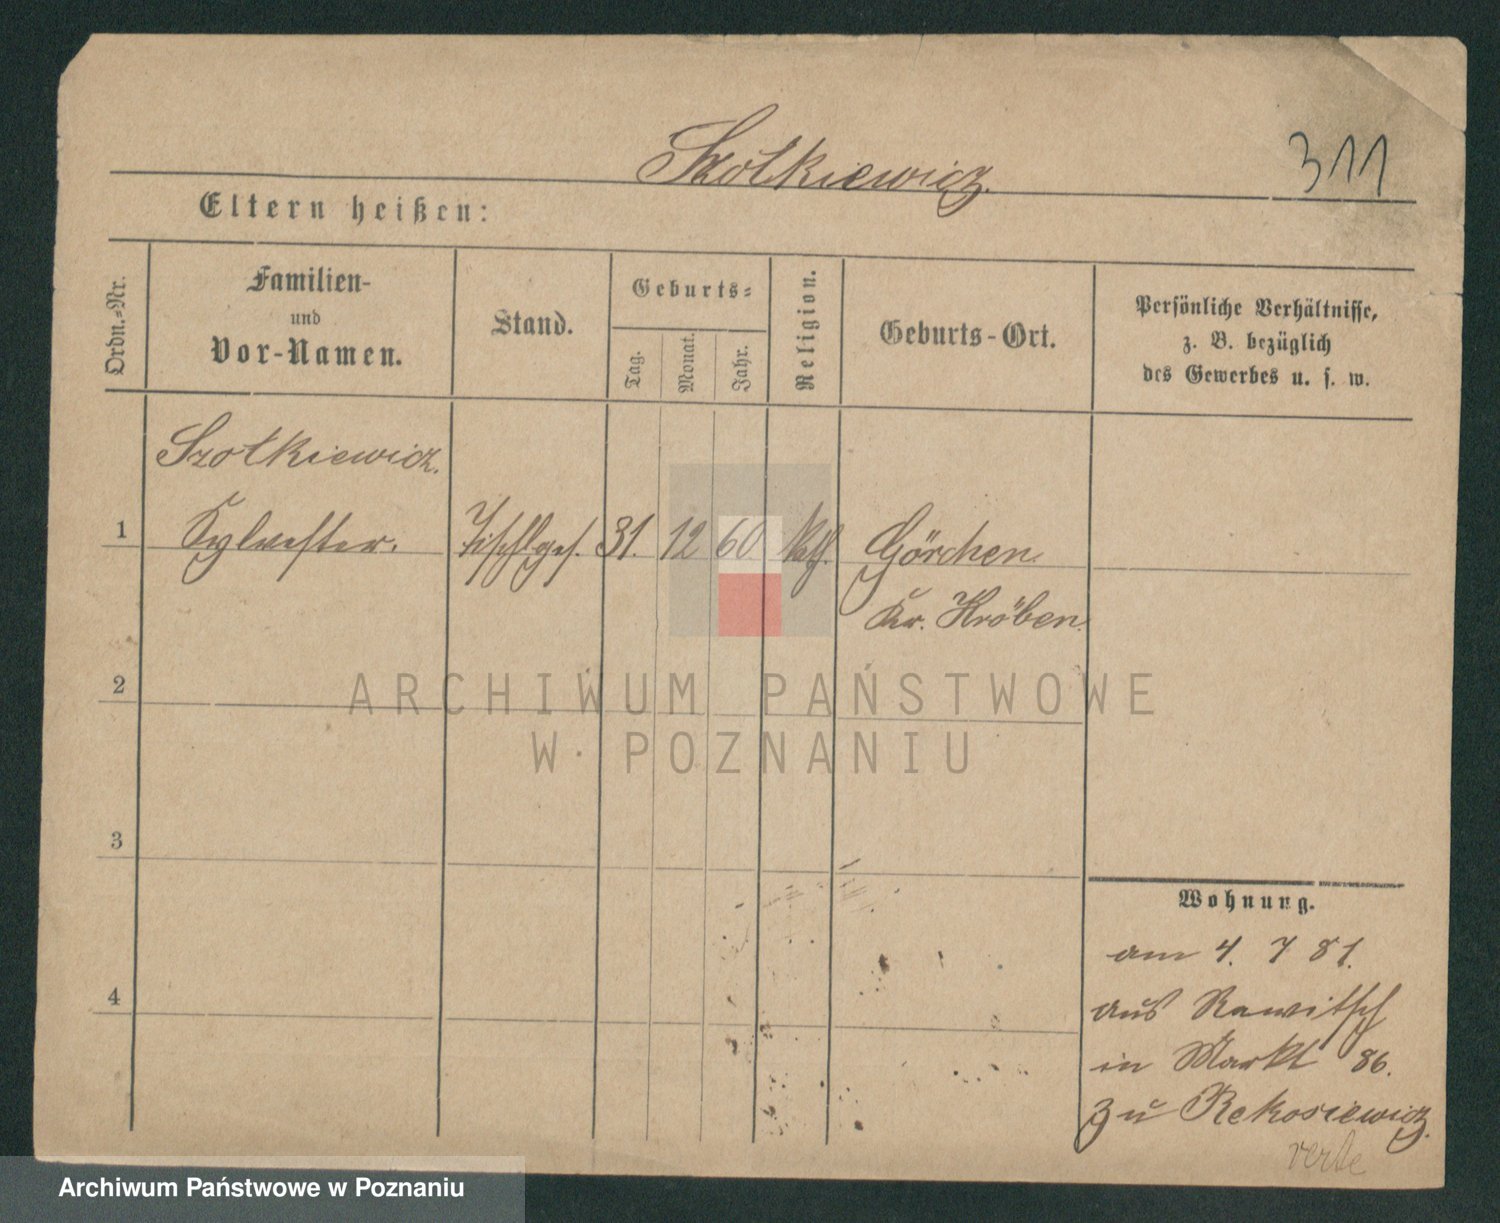 Szotkiewicz.
311
Eltern heißen:
Ordn.=Nr.
Familien-
und
Vor-Namen.
Stand.
Geburts=
Tag.
Monat.
Jahr.
Religion.
Geburts-Ort.
Persönliche Verhältnisse,
z. B. bezüglich
des Gewerbes u. s. w.
Szotkiewicz.
1 Sylvester. Tischlges. 31. 12 60 kth. Görchen
Kr. Kröben.
2
3
4
Wohnung.
am 4. 7 81.
aus Rawitsch
in Markt 86.
zu Rekosiewicz.
verte
ARCHIWUM PAŃSTWOWE
W POZNANIU
Archiwum Państwowe w Poznaniu